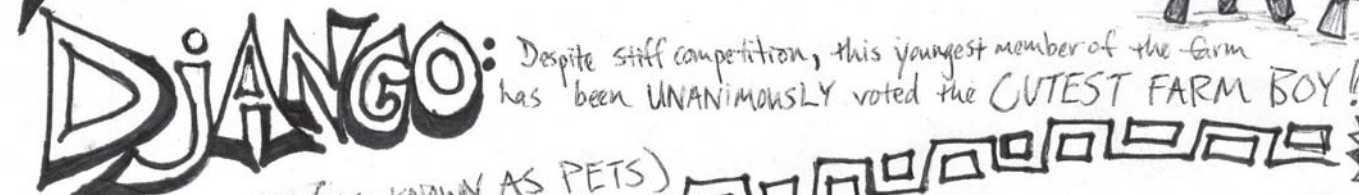 DjANGO: Despite stiff competition, this youngest member of the farm
has been UNANiMOUSLY voted the CUTEST FARM BOY!
KNOWN AS PETS)